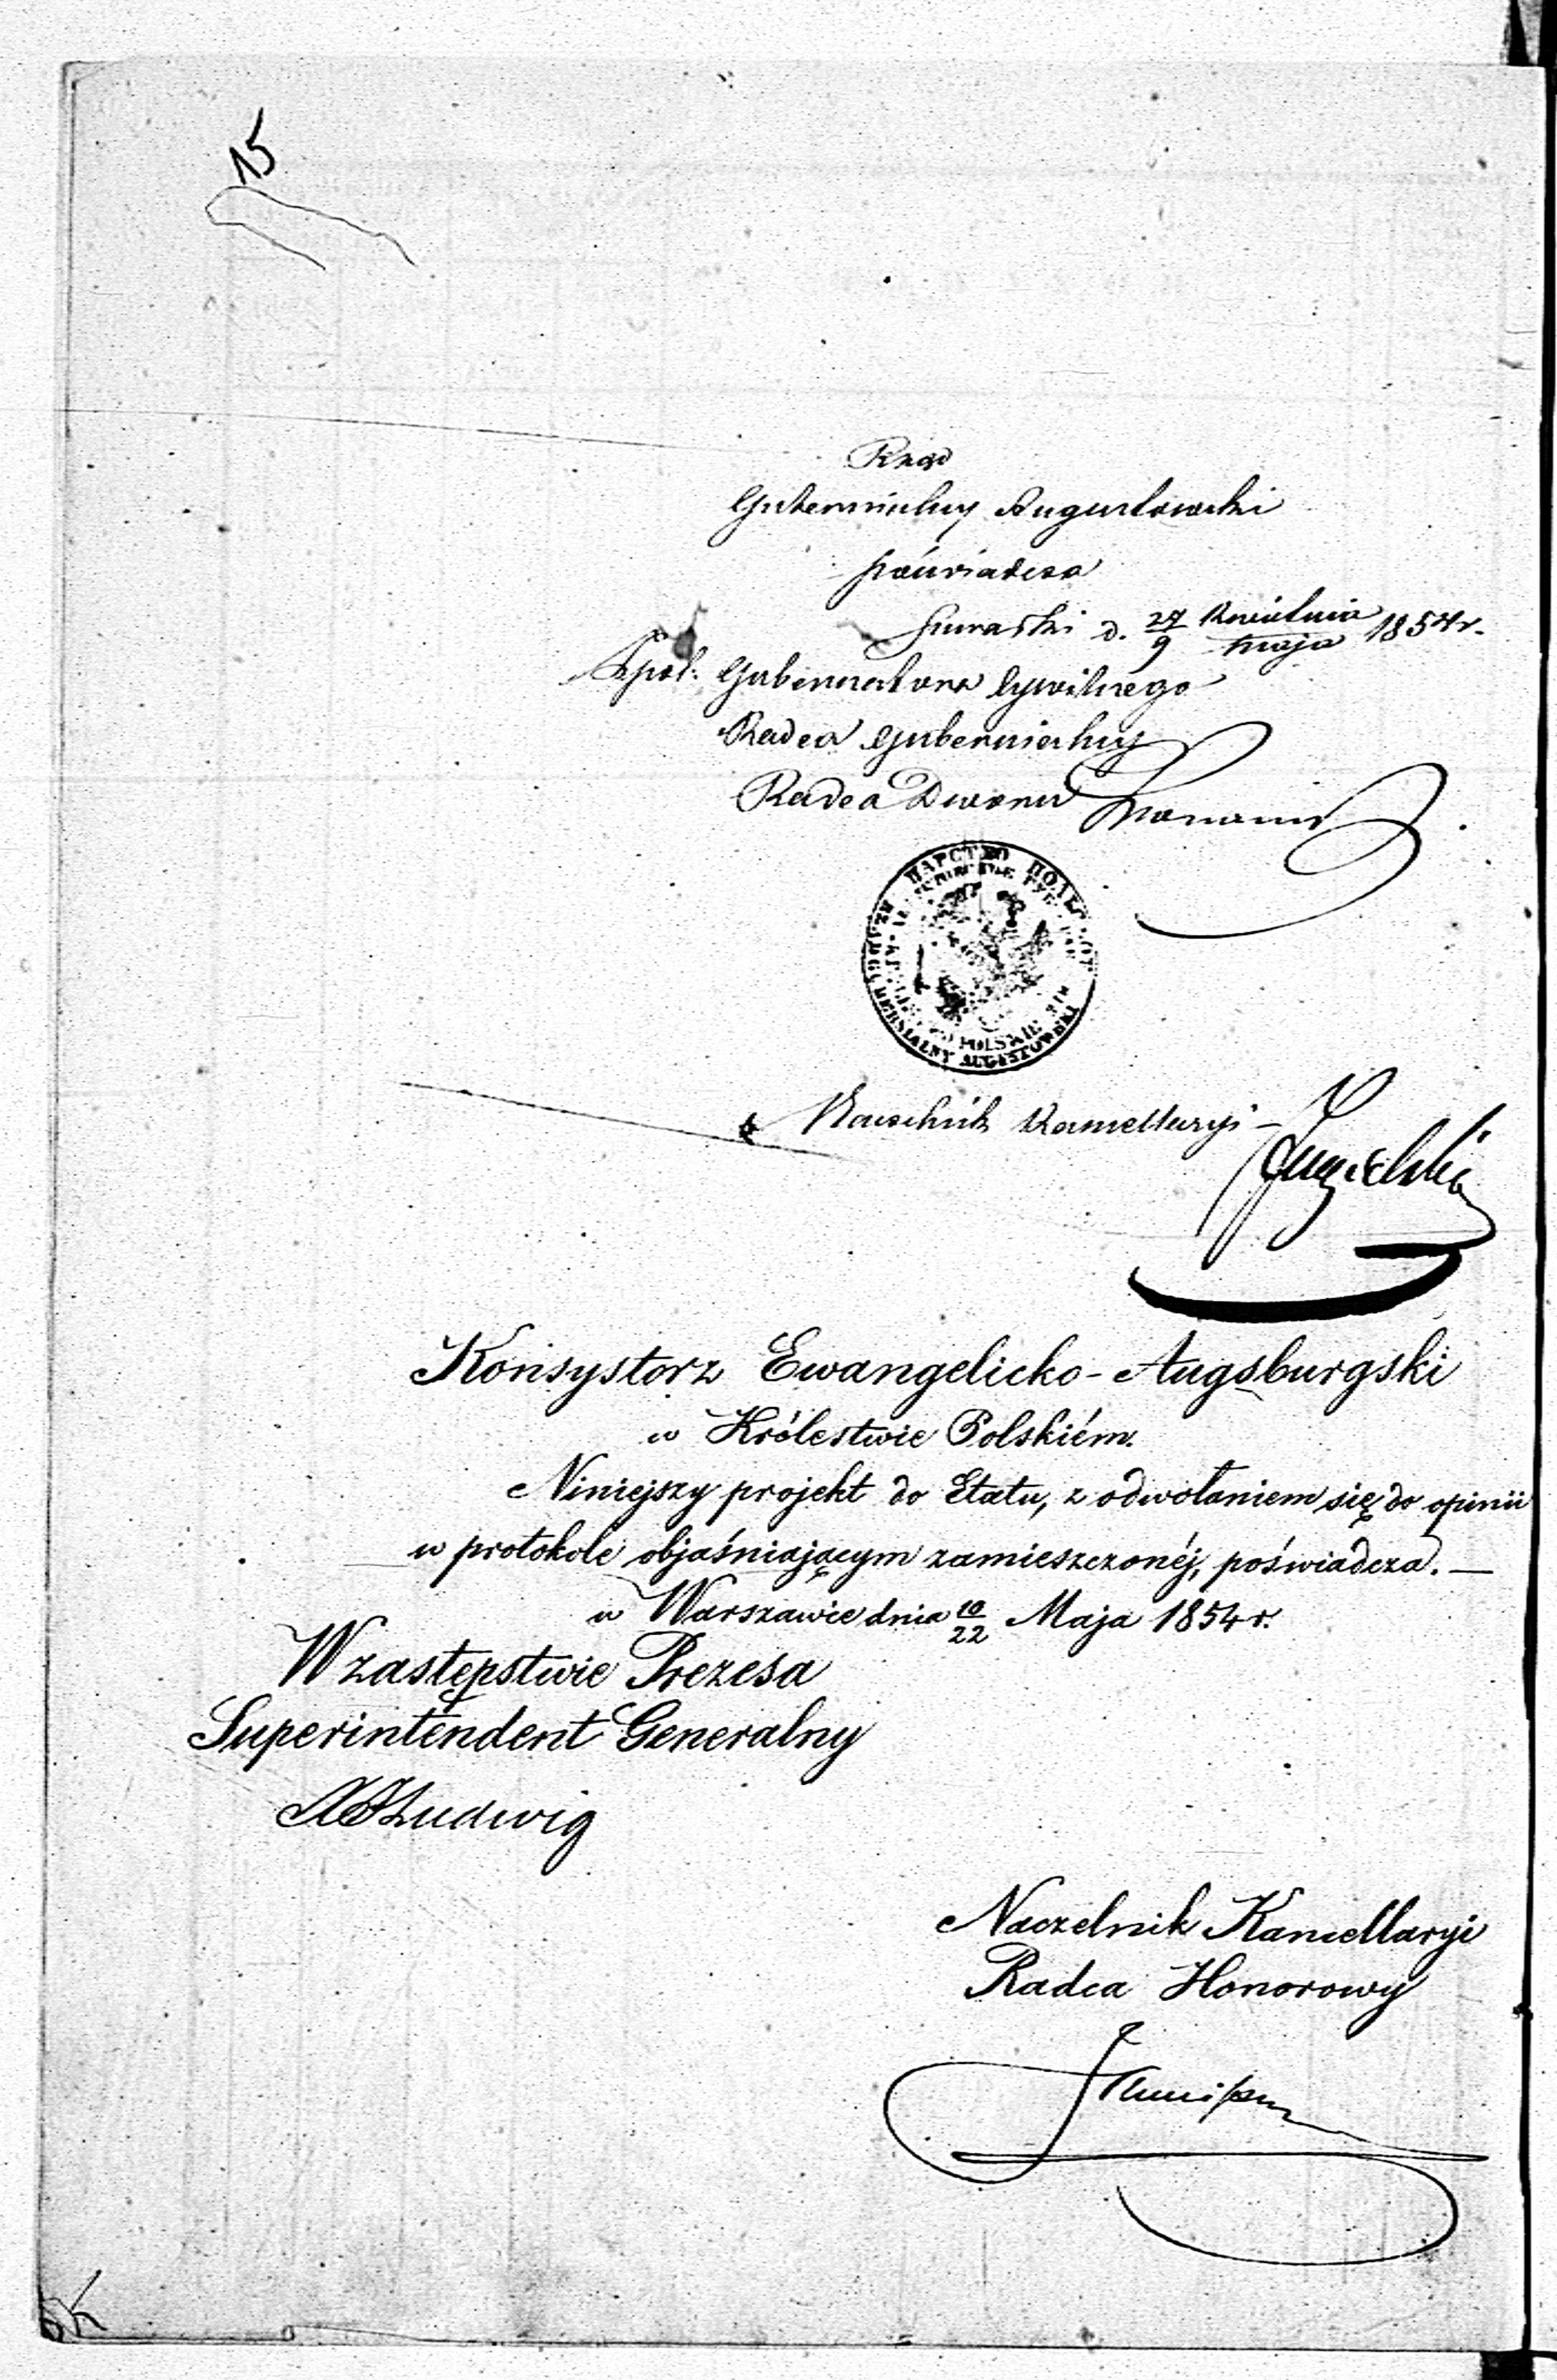 15
Rząd
Gubernialny Augustowski
poświadcza
Suwałki d. 27/9 Kwietnia/Maja 1854 r.
Gubernatora Cywilnego
Radca Gubernialny
Radca Dworu
ЦАРСТВО ПОЛЬС
POLSKIE
GUBERNIALNY AUGUSTOWSKI
Naczelnik Kancellaryi
Konsystorz Ewangelicko-Augsburgski
w Królestwie Polskiém.
Niniejszy projekt do Etatu, z odwołaniem się do opinii
w protokole objaśniającym zamieszczonéj, poświadcza. —
w Warszawie dnia 10/22 Maja 1854 r.
W zastępstwie Prezesa
Superintendent Generalny
Ludwig
Naczelnik Kancellaryi
Radca Honorowy